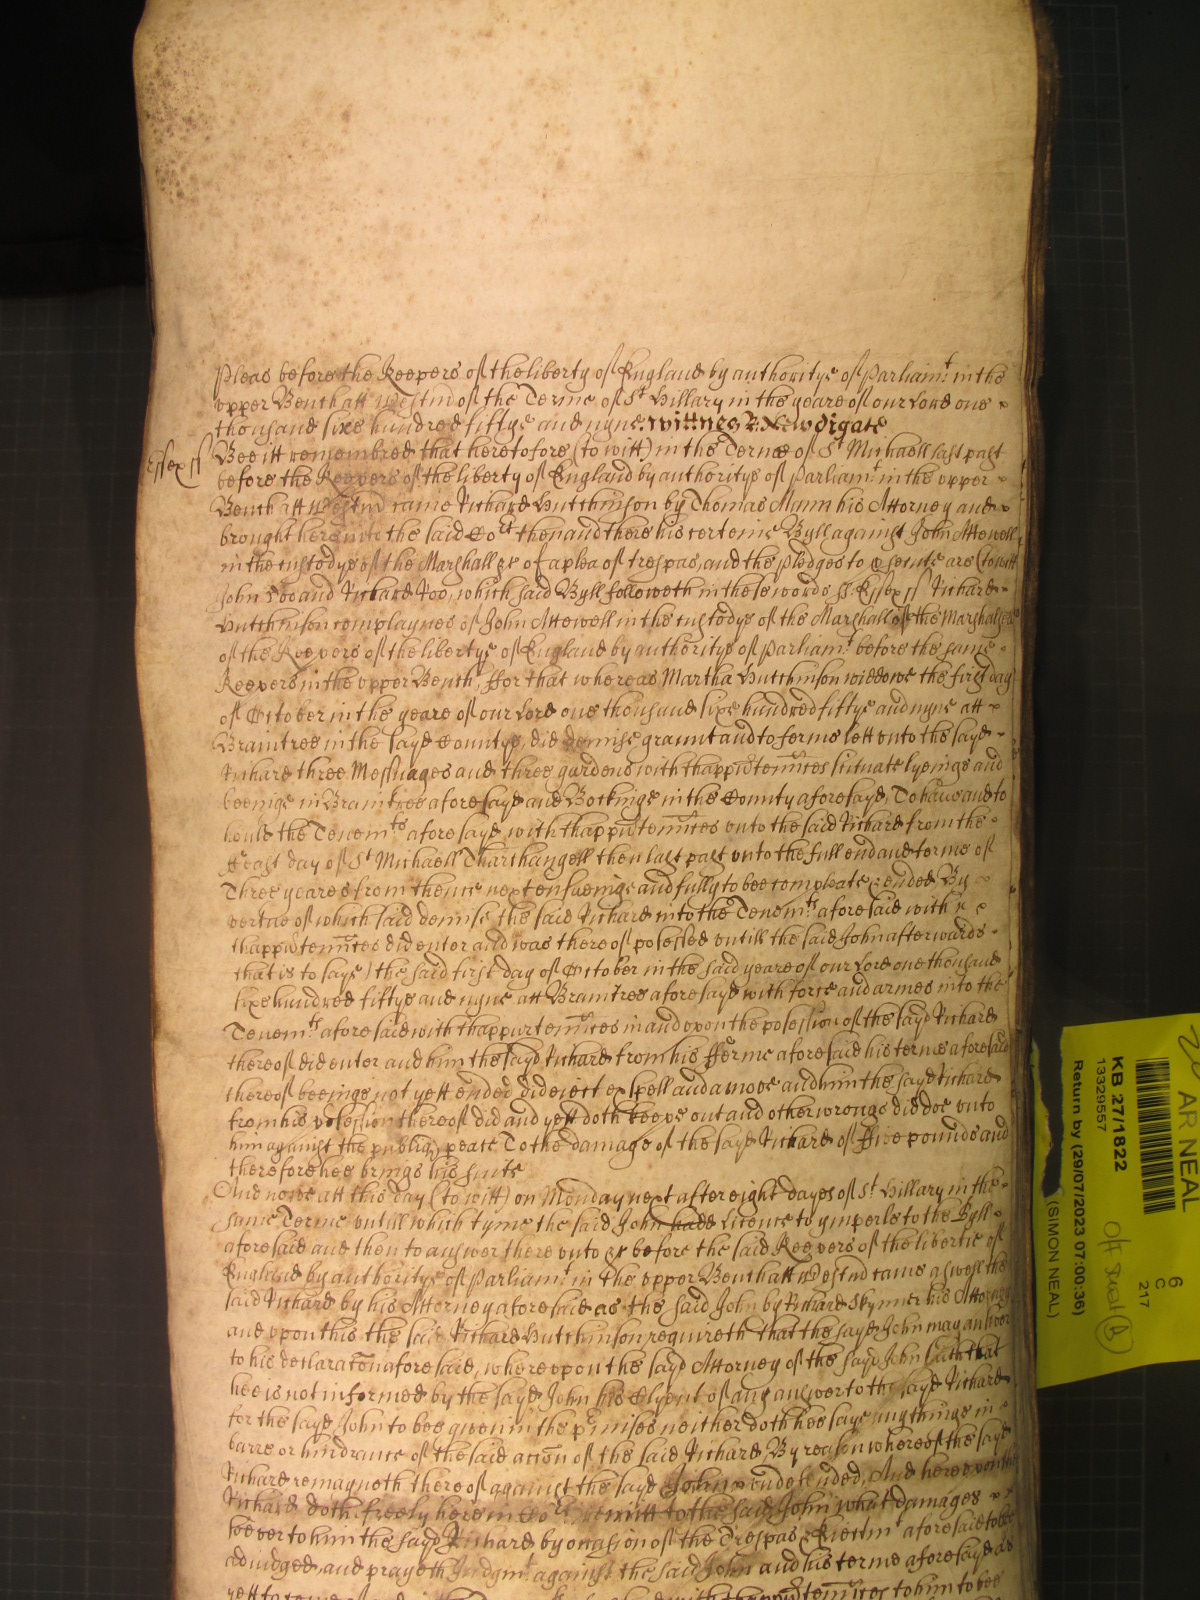 Pleas before the Keepers of the liberty of England by authoritye of Parliamt in the
upper Bench att Westm of the Terme of St Hillary in the yeare of our Lord one
thousand sixe hundred fiftye and nyne. Wittnes R: Newdigate
Essex ss Bee itt remembred that heretofore (to witt) in the Terme of St Michaell last past
before the Keepers of the liberty of England by authoritye of Parliamt in the upper
Bench att Westm came Richard Hutchinson by Thomas Mann his Attorney and
brought here into the said Cort then and there his certeine Byll against John Attewell
in the custodye of the Marshall &c of a plea of trespas, and the pledges to psecute are (to witt
John Doo and Richard Roo, which said Byll followeth in these words ss. Essex ss Richard
Hutchinson complaynes of John Attewell in the custodye of the Marshall of the Marshalsea
of the Keepers of the libertye of England by authoritye of Parliamt before the same
Keepers in the upper Bench, ffor that whereas Martha Hutchinson widdowe the first day
of October in the yeare of our Lord one thousand sixe hundred fiftye and nyne att
Braintree in the sayd Countye, did demise graunt and to ferme lett unto the sayd
Richard three Messuages and three gardens with thappurtennces scituate lyeinge and
beeinge in Braintree aforesayd and Bockinge in the County aforesayd, To have and to
hould the Tenemts aforesayd with thappurtennces unto the said Richard from the
ffeast day of St Michaell Tharchangell then last past unto the full end and terme of
Three yeares from thence next ensueinge and fully to bee compleate & ended By
vertue of which said demise the said Richard into the Tenemts aforesaid with
thappurtennces did enter and was thereof posessed untill the said John afterwards
that is to saye) the said first day of October in the said yeare of our Lord one thousand
sixe hundred fiftye and nyne att Braintree aforesayd with force and armes into the
Tenemts aforesaid with thappurtennces in and upon the posession of the sayd Richard
thereof did enter and him the sayd Richard from his fferme aforesaid his terme aforesaid
thereof beeinge not yett ended did eject expell and amove and him the sayd Richard
from his posession thereof did and yett doth keepe out and other wrongs did doe unto
him against the publiq peace To the damage of the sayd Richard of ffive pounds and
therefore hee brings his suite
And nowe att this day (to witt) on Monday next after eight dayes of St Hillary in the
same Terme untill which tyme the said John hadd licence to ymparle to the Byll
aforesaid and then to answer thereunto &c before the said Keepers of the libertie of
England by authoritye of Parliamt in the upper Bench att Westm came aswell the
said Richard by his Attorney aforesaid as the said John by Richard Skynner his Attorney
and upon this the said Richard Hutchinson requireth that the sayd John may answer
to his declaracon aforesaid, whereupon the sayd Attorney of the sayd John saith that
hee is not informed by the sayd John his Clyent of any answer to the sayd Richard
for the sayd John to bee given in the pmises neither doth hee saye anythinge in
barre or hindrance of the said accon of the said Richard By reason whereof the sayd
Richard remayneth thereof against the sayd John undefended, And hereupon the
Richard doth freely here in Cort remitt to the said John what damages
soever to him the sayd Richard by occasion of the Trespas & Ejectmt aforesaid to bee
adiudged, and prayeth Judgmt against the said John and his terme aforesayd as
with thappurtennces to him to bee
AR NEAL
6
C
217
KB 27/1822
13329557
Return by (29/07/2023 07:00:36)
(SIMON NEAL)